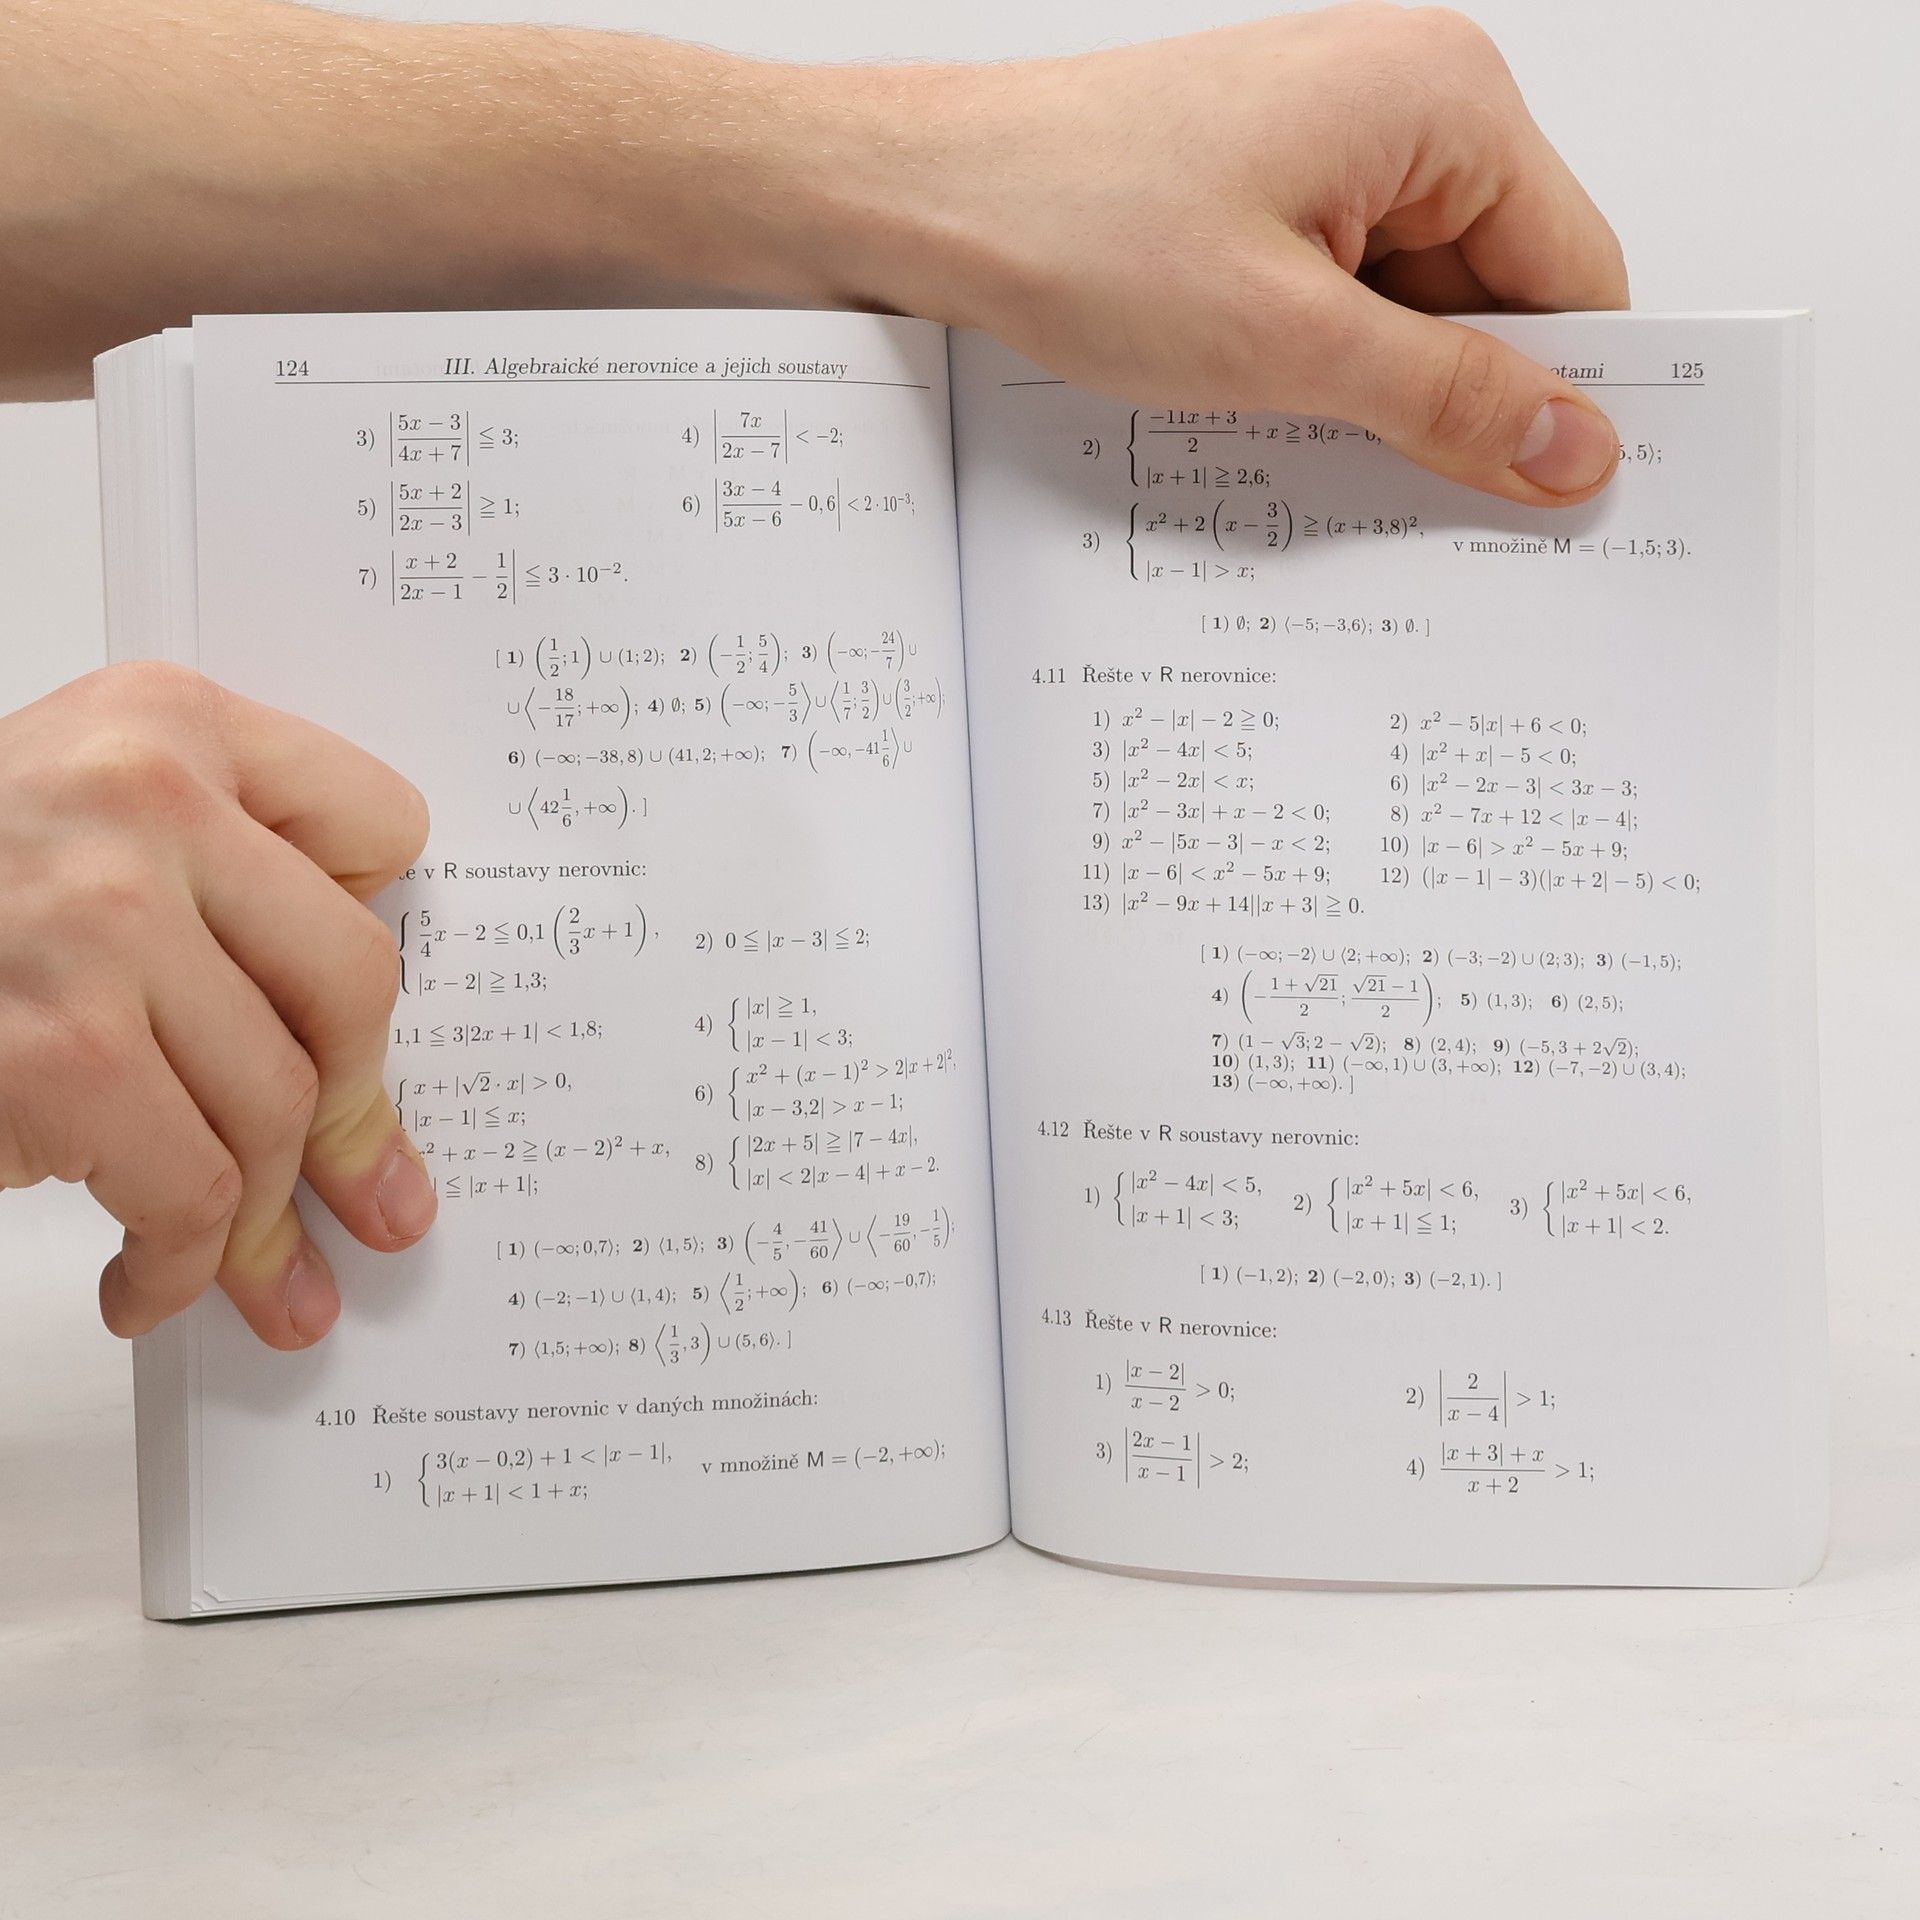 124 III. Algebraické nerovnice a jejich soustavy
3) |(5x − 3)/(4x + 7)| ≦ 3; 4) |7x/(2x − 7)| < −2;
5) |(5x + 2)/(2x − 3)| ≧ 1; 6) |(3x − 4)/(5x − 6) − 0,6| < 2 · 10⁻³;
7) |(x + 2)/(2x − 1) − 1/2| ≦ 3 · 10⁻².
[ 1) (1/2; 1) ∪ (1; 2); 2) (−1/2; 5/4); 3) (−∞; −24/7) ∪
∪ ⟨−18/17; +∞); 4) ∅; 5) (−∞; −5/3⟩ ∪ ⟨1/7; 3/2) ∪ (3/2; +∞);
6) (−∞; −38,8) ∪ (41,2; +∞); 7) (−∞, −41 1/6⟩ ∪
∪ ⟨42 1/6, +∞). ]
v R soustavy nerovnic:
{ 5/4 x − 2 ≦ 0,1 (2/3 x + 1), 2) 0 ≦ |x − 3| ≦ 2;
|x − 2| ≧ 1,3;
1,1 ≦ 3|2x + 1| < 1,8; 4) { |x| ≧ 1,
|x − 1| < 3;
{ x + |√2 · x| > 0, 6) { x² + (x − 1)² > 2|x + 2|²,
|x − 1| ≦ x; |x − 3,2| > x − 1;
² + x − 2 ≧ (x − 2)² + x, 8) { |2x + 5| ≧ |7 − 4x|,
| ≦ |x + 1|; |x| < 2|x − 4| + x − 2.
[ 1) (−∞; 0,7⟩; 2) ⟨1, 5⟩; 3) (−4/5, −41/60⟩ ∪ ⟨−19/60, −1/5);
4) (−2; −1⟩ ∪ ⟨1, 4); 5) ⟨1/2; +∞); 6) (−∞; −0,7);
7) ⟨1,5; +∞); 8) ⟨1/3, 3) ∪ (5, 6⟩. ]
4.10 Řešte soustavy nerovnic v daných množinách:
1) { 3(x − 0,2) + 1 < |x − 1|, v množině M = (−2, +∞);
|x + 1| < 1 + x;
125
2) { (−11x + 3)/2 + x ≧ 3(x − 5⟩;
|x + 1| ≧ 2,6;
3) { x² + 2 (x − 3/2) ≧ (x + 3,8)², v množině M = (−1,5; 3).
|x − 1| > x;
[ 1) ∅; 2) ⟨−5; −3,6⟩; 3) ∅. ]
4.11 Řešte v R nerovnice:
1) x² − |x| − 2 ≧ 0; 2) x² − 5|x| + 6 < 0;
3) |x² − 4x| < 5; 4) |x² + x| − 5 < 0;
5) |x² − 2x| < x; 6) |x² − 2x − 3| < 3x − 3;
7) |x² − 3x| + x − 2 < 0; 8) x² − 7x + 12 < |x − 4|;
9) x² − |5x − 3| − x < 2; 10) |x − 6| > x² − 5x + 9;
11) |x − 6| < x² − 5x + 9; 12) (|x − 1| − 3)(|x + 2| − 5) < 0;
13) |x² − 9x + 14||x + 3| ≧ 0.
[ 1) (−∞; −2⟩ ∪ ⟨2; +∞); 2) (−3; −2) ∪ (2; 3); 3) (−1, 5);
4) (−(1 + √21)/2; (√21 − 1)/2); 5) (1, 3); 6) (2, 5);
7) (1 − √3; 2 − √2); 8) (2, 4); 9) (−5, 3 + 2√2);
10) (1, 3); 11) (−∞, 1) ∪ (3, +∞); 12) (−7, −2) ∪ (3, 4);
13) (−∞, +∞). ]
4.12 Řešte v R soustavy nerovnic:
1) { |x² − 4x| < 5, 2) { |x² + 5x| < 6, 3) { |x² + 5x| < 6,
|x + 1| < 3; |x + 1| ≦ 1; |x + 1| < 2.
[ 1) (−1, 2); 2) (−2, 0⟩; 3) (−2, 1). ]
4.13 Řešte v R nerovnice:
1) |x − 2|/(x − 2) > 0; 2) |2/(x − 4)| > 1;
3) |(2x − 1)/(x − 1)| > 2; 4) (|x + 3| + x)/(x + 2) > 1;